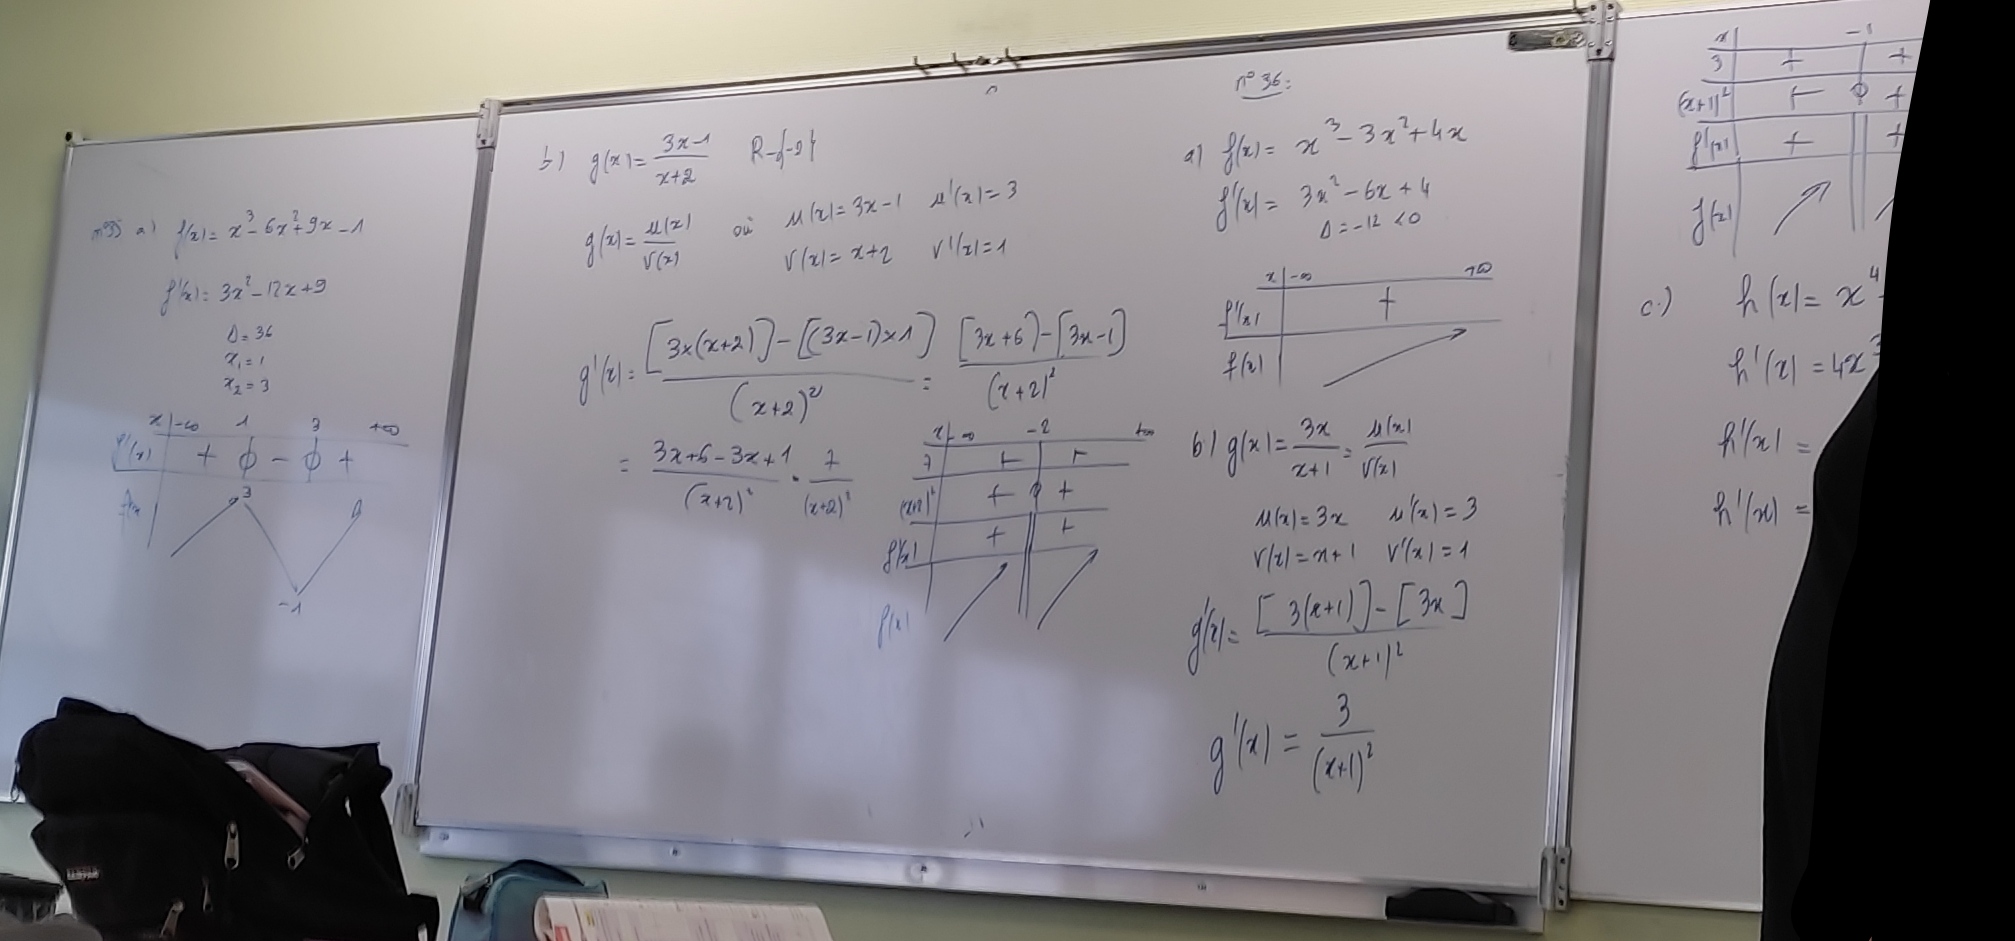 n°35 a) f(x) = x³ - 6x² + 9x - 1
f'(x) = 3x² - 12x + 9
Δ = 36
x₁ = 1
x₂ = 3
x | -∞ 1 3 +∞
f'(x) + 0 - 0 +
3
-1
b) g(x) = (3x-1)/(x+2) R-{-2}
g(x) = u(x)/v(x) où u(x) = 3x-1 u'(x) = 3
v(x) = x+2 v'(x) = 1
g'(x) = [3×(x+2)] - [(3x-1)×1] / (x+2)² = [3x+6] - [3x-1] / (x+2)²
= (3x+6-3x+1)/(x+2)² = 7/(x+2)²
x | -∞ -2 +∞
7 + +
(x+2)² + 0 +
f'(x) + || +
f(x)
n° 36:
a) f(x) = x³ - 3x² + 4x
f'(x) = 3x² - 6x + 4
Δ = -12 < 0
x | -∞ +∞
f'(x) +
f(x)
b) g(x) = 3x/(x+1) = u(x)/v(x)
u(x) = 3x u'(x) = 3
v(x) = x+1 v'(x) = 1
g'(x) = [3(x+1)] - [3x] / (x+1)²
g'(x) = 3/(x+1)²
x | -1
3 + +
(x+1)² + 0 +
f'(x) + || +
f(x)
c) h(x) = x⁴ -
h'(x) = 4x³
h'(x) =
h'(x) =